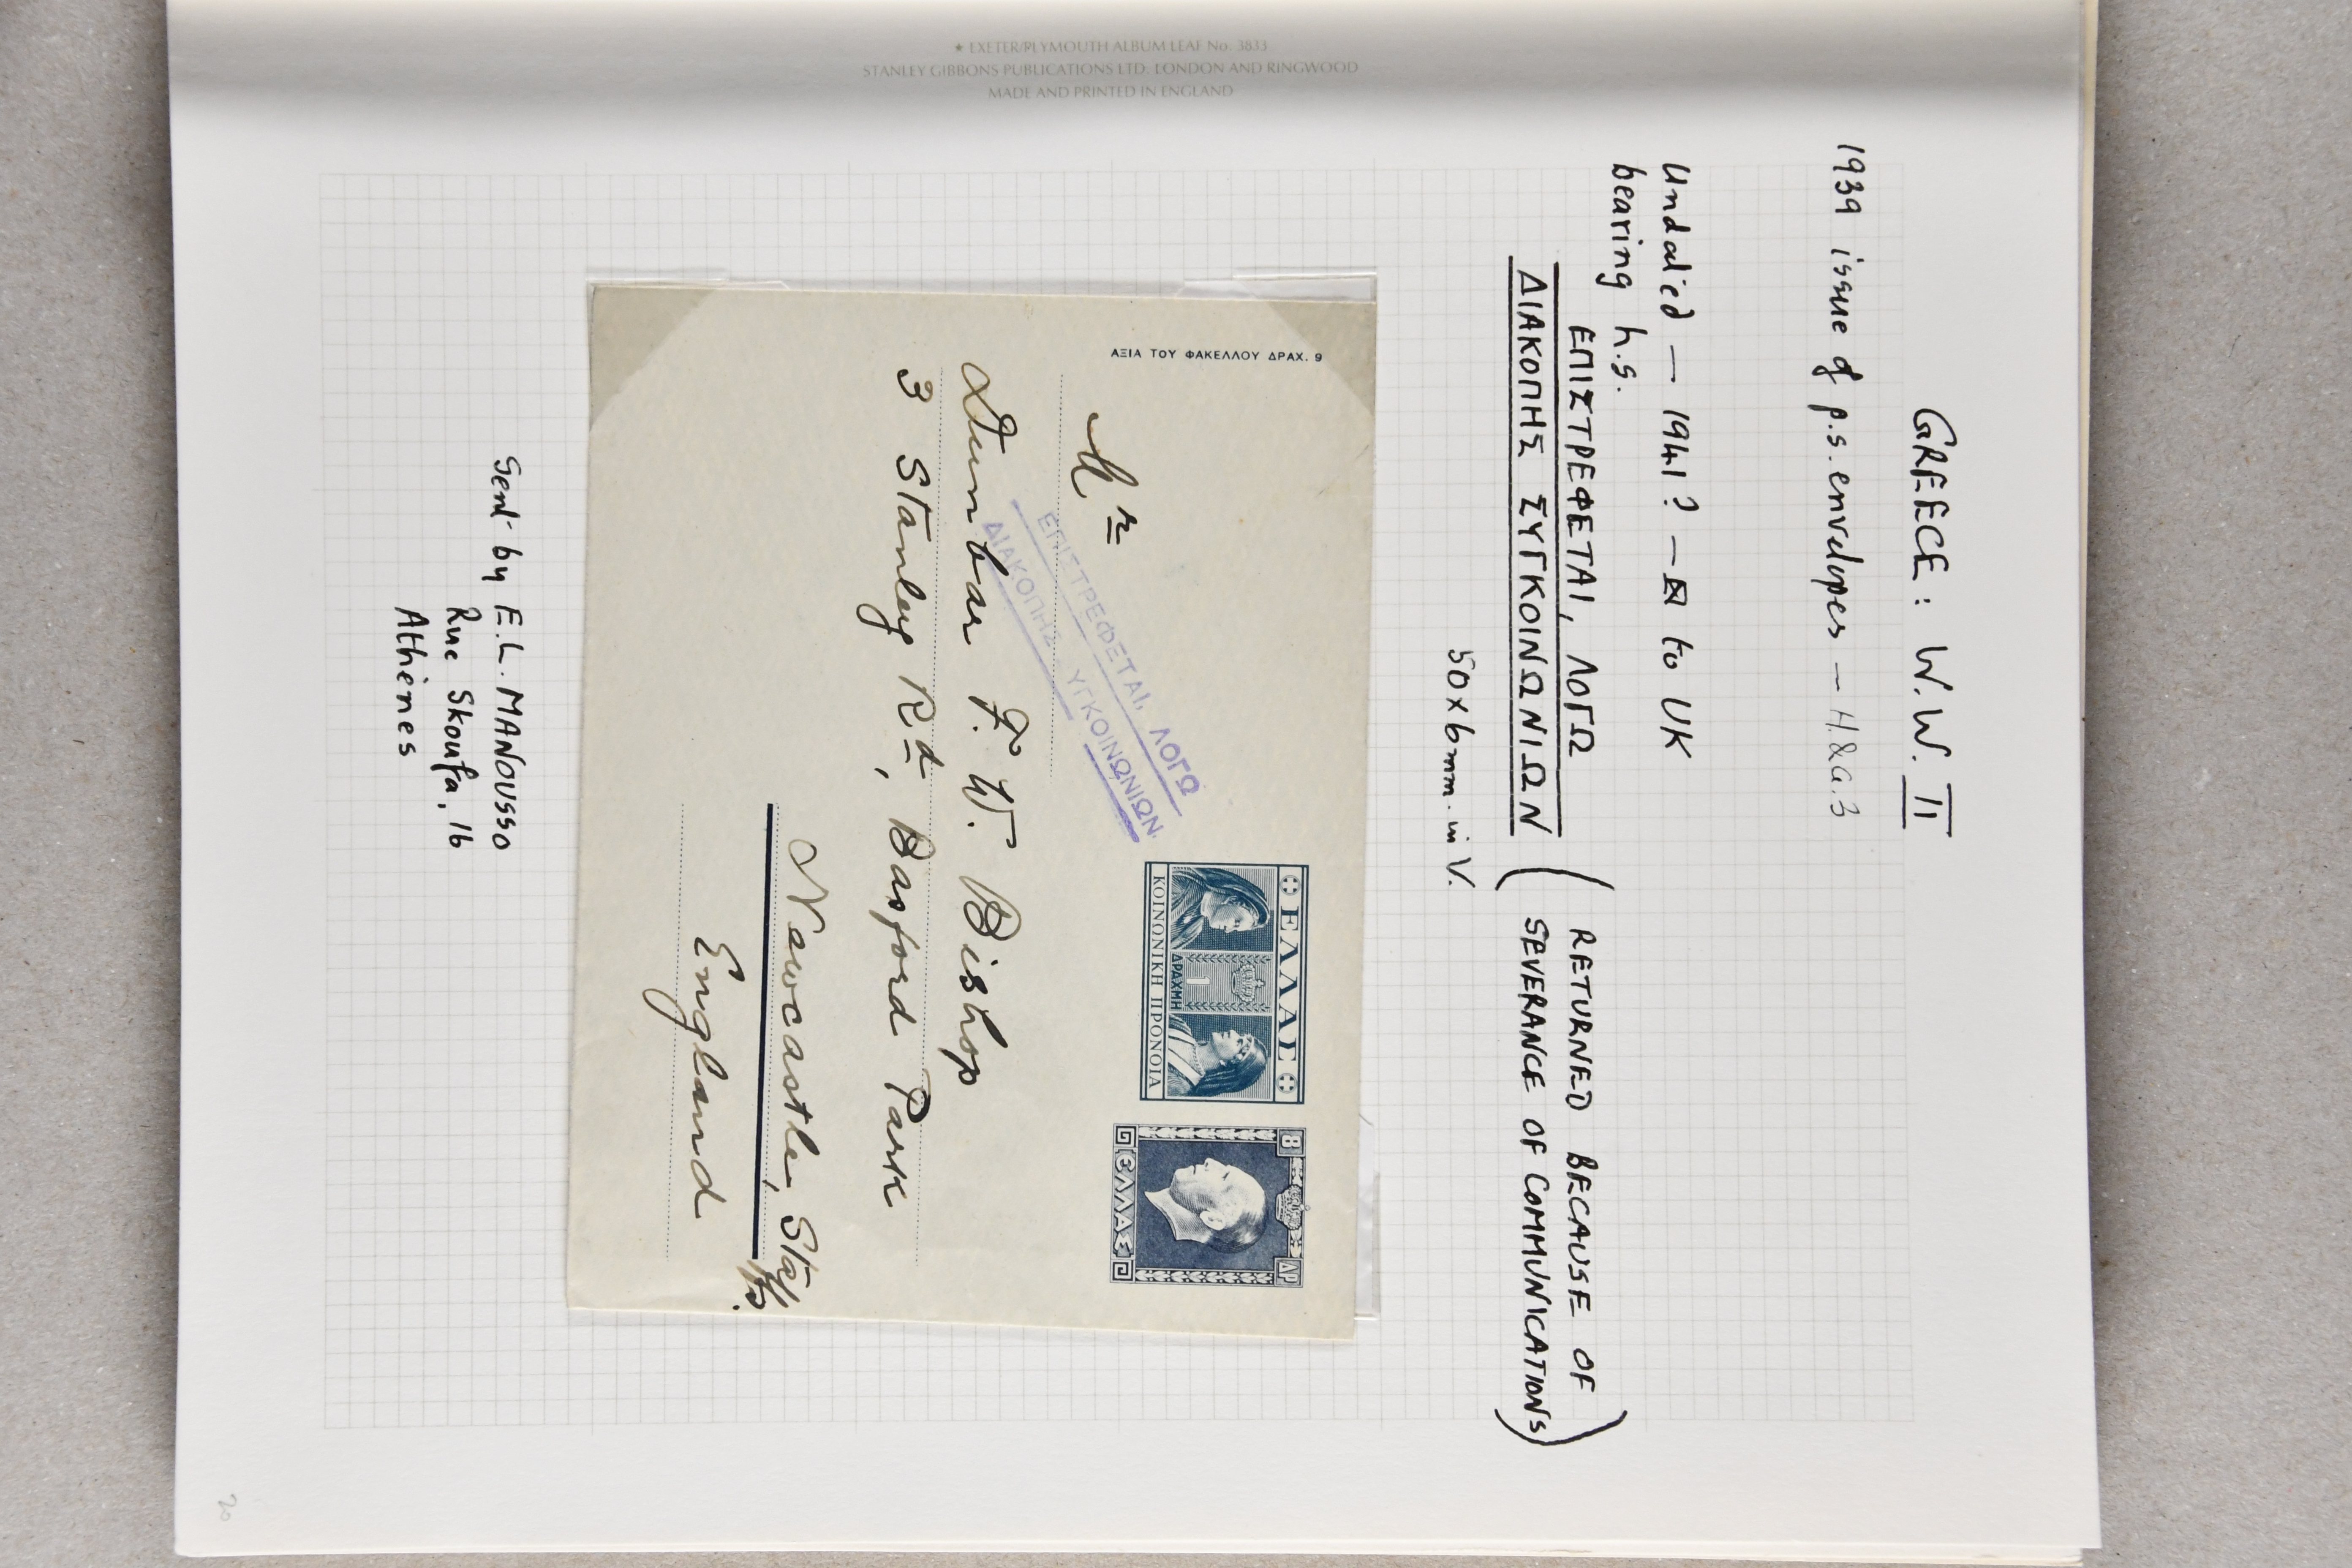 ★ EXETER/PLYMOUTH ALBUM LEAF No. 3833
STANLEY GIBBONS PUBLICATIONS LTD. LONDON AND RINGWOOD
MADE AND PRINTED IN ENGLAND
GREECE: W.W. II
1939 issue of p.s. envelopes — H.&G.3
Undated — 1941? — to UK
bearing h.s.
ΕΠΙΣΤΡΕΦΕΤΑΙ, ΛΟΓΩ
ΔΙΑΚΟΠΗΣ ΣΥΓΚΟΙΝΩΝΙΩΝ
(RETURNED BECAUSE OF
SEVERANCE OF COMMUNICATIONS)
50 x 6mm. in V.
ΑΞΙΑ ΤΟΥ ΦΑΚΕΛΛΟΥ ΔΡΑΧ. 9
ΕΛΛΑΣ
ΔΡΑΧΜΗ
1
ΚΟΙΝΩΝΙΚΗ ΠΡΟΝΟΙΑ
8 ΔΡ
ΕΛΛΑΣ
ΕΠΙΣΤΡΕΦΕΤΑΙ, ΛΟΓΩ
ΔΙΑΚΟΠΗΣ ΥΓΚΟΙΝΩΝΙΩΝ
Mr
Dunbar F. W. Bishop
3 Stanley Rd, Basford Park
Newcastle, Staffs.
England
Sent by E.L. MANOUSSO
Rue Skoufa, 16
Athènes
20